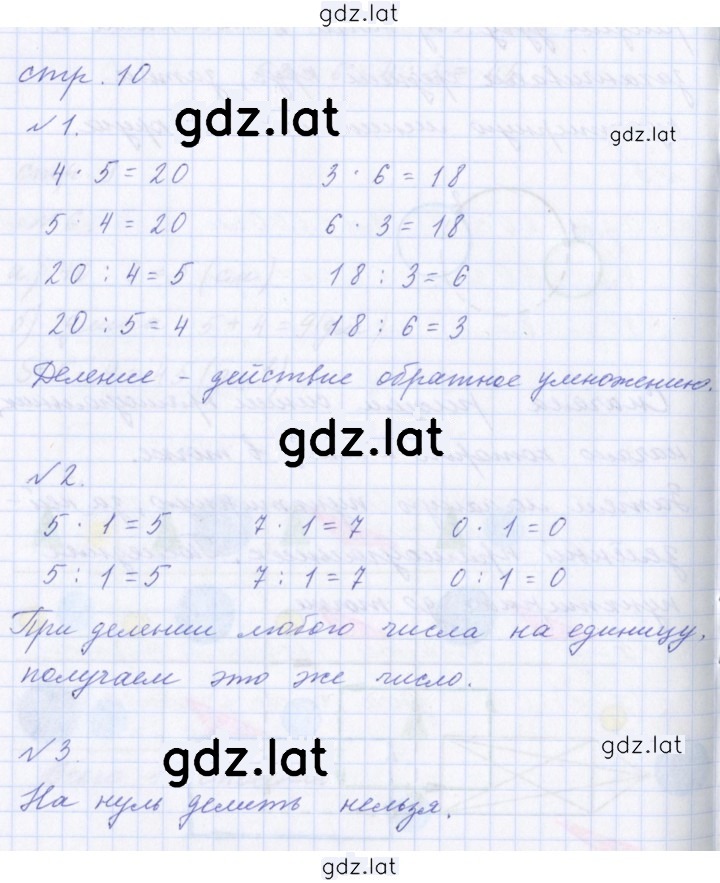 gdz.lat
стр. 10
gdz.lat
№1.
gdz.lat
4 · 5 = 20 3 · 6 = 18
5 · 4 = 20 6 · 3 = 18
20 : 4 = 5 18 : 3 = 6
20 : 5 = 4 18 : 6 = 3
Деление - действие обратное умножению.
gdz.lat
№2.
5 · 1 = 5 7 · 1 = 7 0 · 1 = 0
5 : 1 = 5 7 : 1 = 7 0 : 1 = 0
При делении любого числа на единицу,
получаем это же число.
gdz.lat
№3.
gdz.lat
На нуль делить нельзя.
gdz.lat